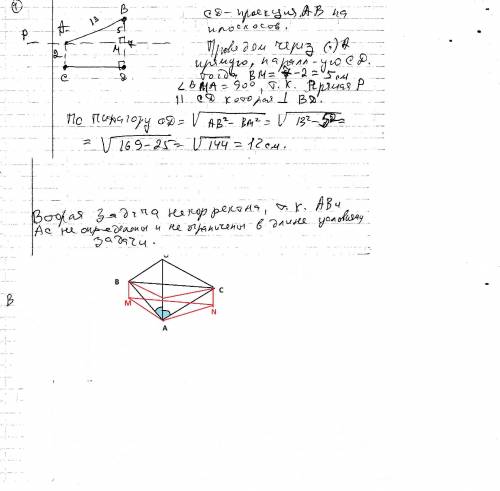 ①
CD - проекция AB на
плоскосов.
P
A
13
B
5
M
7
2
C
D
Проведём через (·) A
прямую, паралл-ую CD.
тогда BM = 7-2 = 5 см
∠BMA = 90°, т.к. прямая P
|| CD которая ⊥ BD.
По Пифагору CD = √AB² - BA² = √13² - 5² =
= √169-25 = √144 = 12 см.
Вторая задача некорректна, т.к. AB и
AC не определены и не ограничены в длине условиями
задачи.
B
B
C
M
N
A